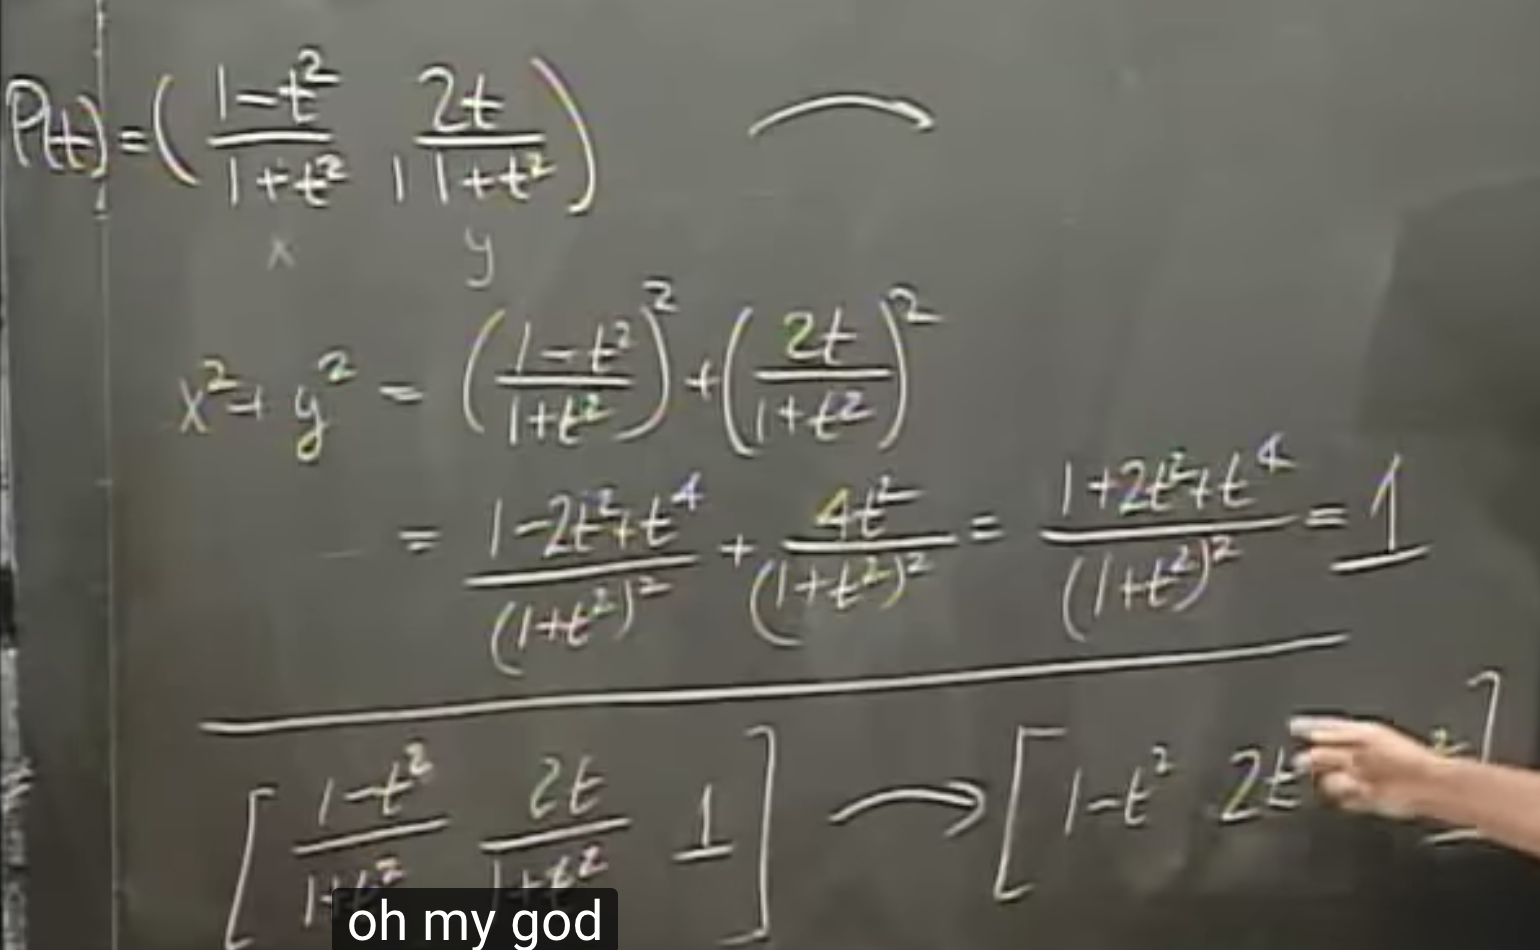 P(t) = ( (1-t²)/(1+t²) , 2t/(1+t²) )
x y
x² + y² = ((1-t²)/(1+t²))² + (2t/(1+t²))²
= (1-2t²+t⁴)/(1+t²)² + 4t²/(1+t²)² = (1+2t²+t⁴)/(1+t²)² = 1
[ (1-t²)/(1+t²) 2t/(1+t²) 1 ] → [ 1-t² 2t ² ]
oh my god